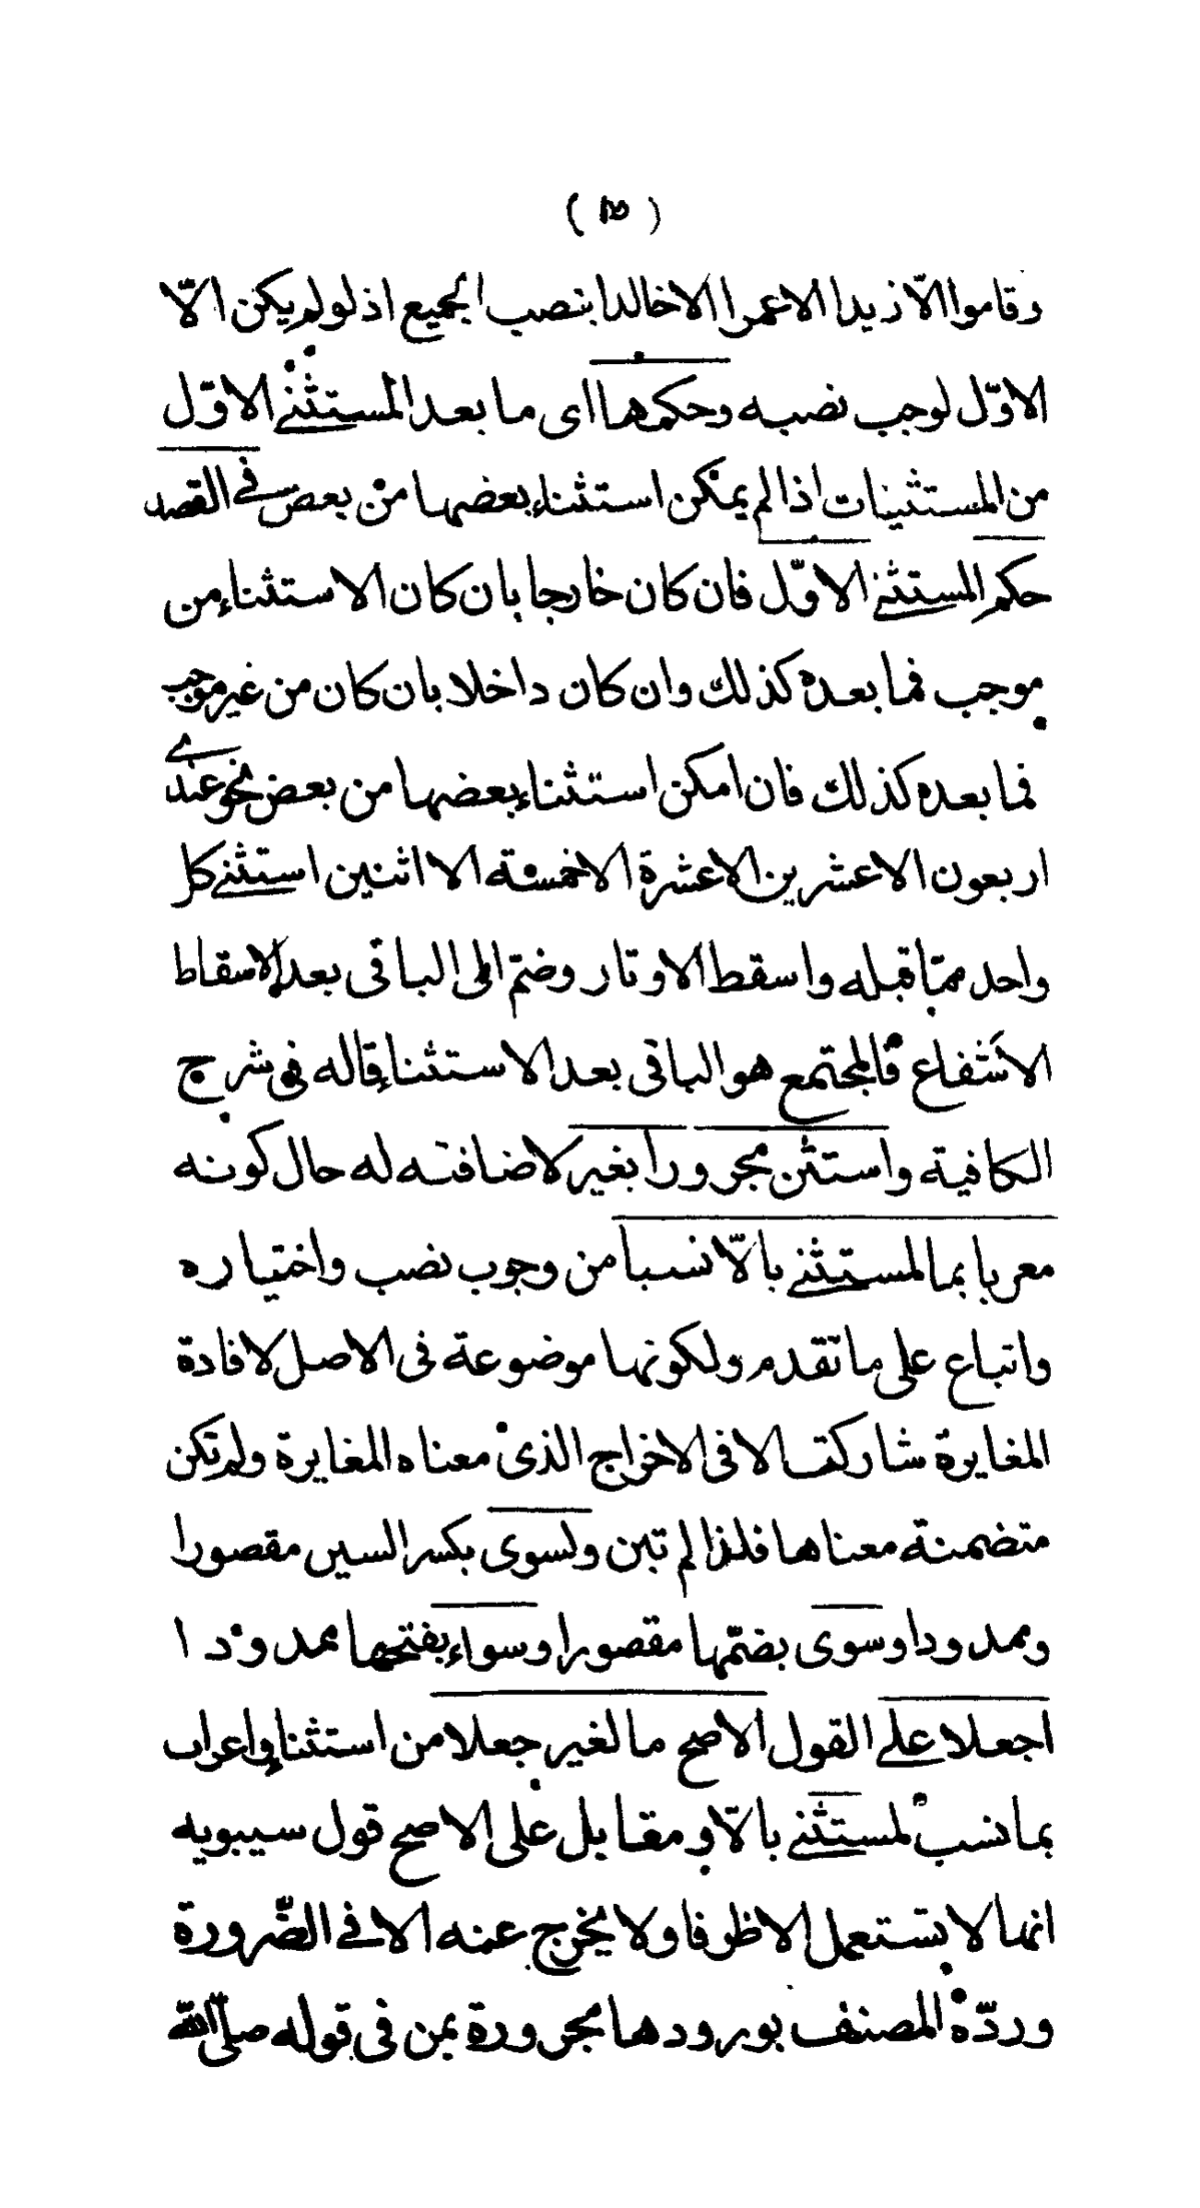 وقاموا الّا زيدا الا عمرا الا خالدا بنصب الجميع اذ لو لم يكن الّا
الاوّل لوجب نصبه وحكمها اى ما بعد المستثنى الاوّل
من المستثنيات اذا لم يمكن استثناء بعضها من بعض فى القصد
حكم المستثنى الاوّل فان كان خارجا بان كان الاستثناء من
موجب فما بعده كذلك وان كان داخلا بان كان من غير موجب
فما بعده كذلك فان امكن استثناء بعضها من بعض نحو عندى
اربعون الا عشرين الا عشرة الا خمسة الا اثنين استثنى كل
واحد ممّا قبله واسقط الاوتار وضمّ الى الباقى بعد الاسقاط
الأشفاع فالمجتمع هو الباقى بعد الاستثناء قاله فى شرح
الكافية واستثن مجرورا بغير لاضافته له حال كونه
معربا بما لمستثنى بالّا نسبا من وجوب نصب واختياره
واتباع على ما تقدم ولكونها موضوعة فى الاصل لافادة
المغايرة شاركت الا فى الاخراج الذى معناه المغايرة ولم تكن
متضمنة معناها فلذا لم تبن ولسوى بكسر السين مقصورا
وممدودا وسوى بضمّها مقصورا وسواء بفتحها ممدودا
اجعلا على القول الاصح ما لغير جعلا من استثناء واعراب
بما نسب لمستثنى بالّا ومقابل على الاصح قول سيبويه
انها لا تستعمل الا ظرفا ولا يخرج عنه الا فى الضّرورة
وردّه المصنف بورودها مجرورة بمن فى قوله صلّى اللّه